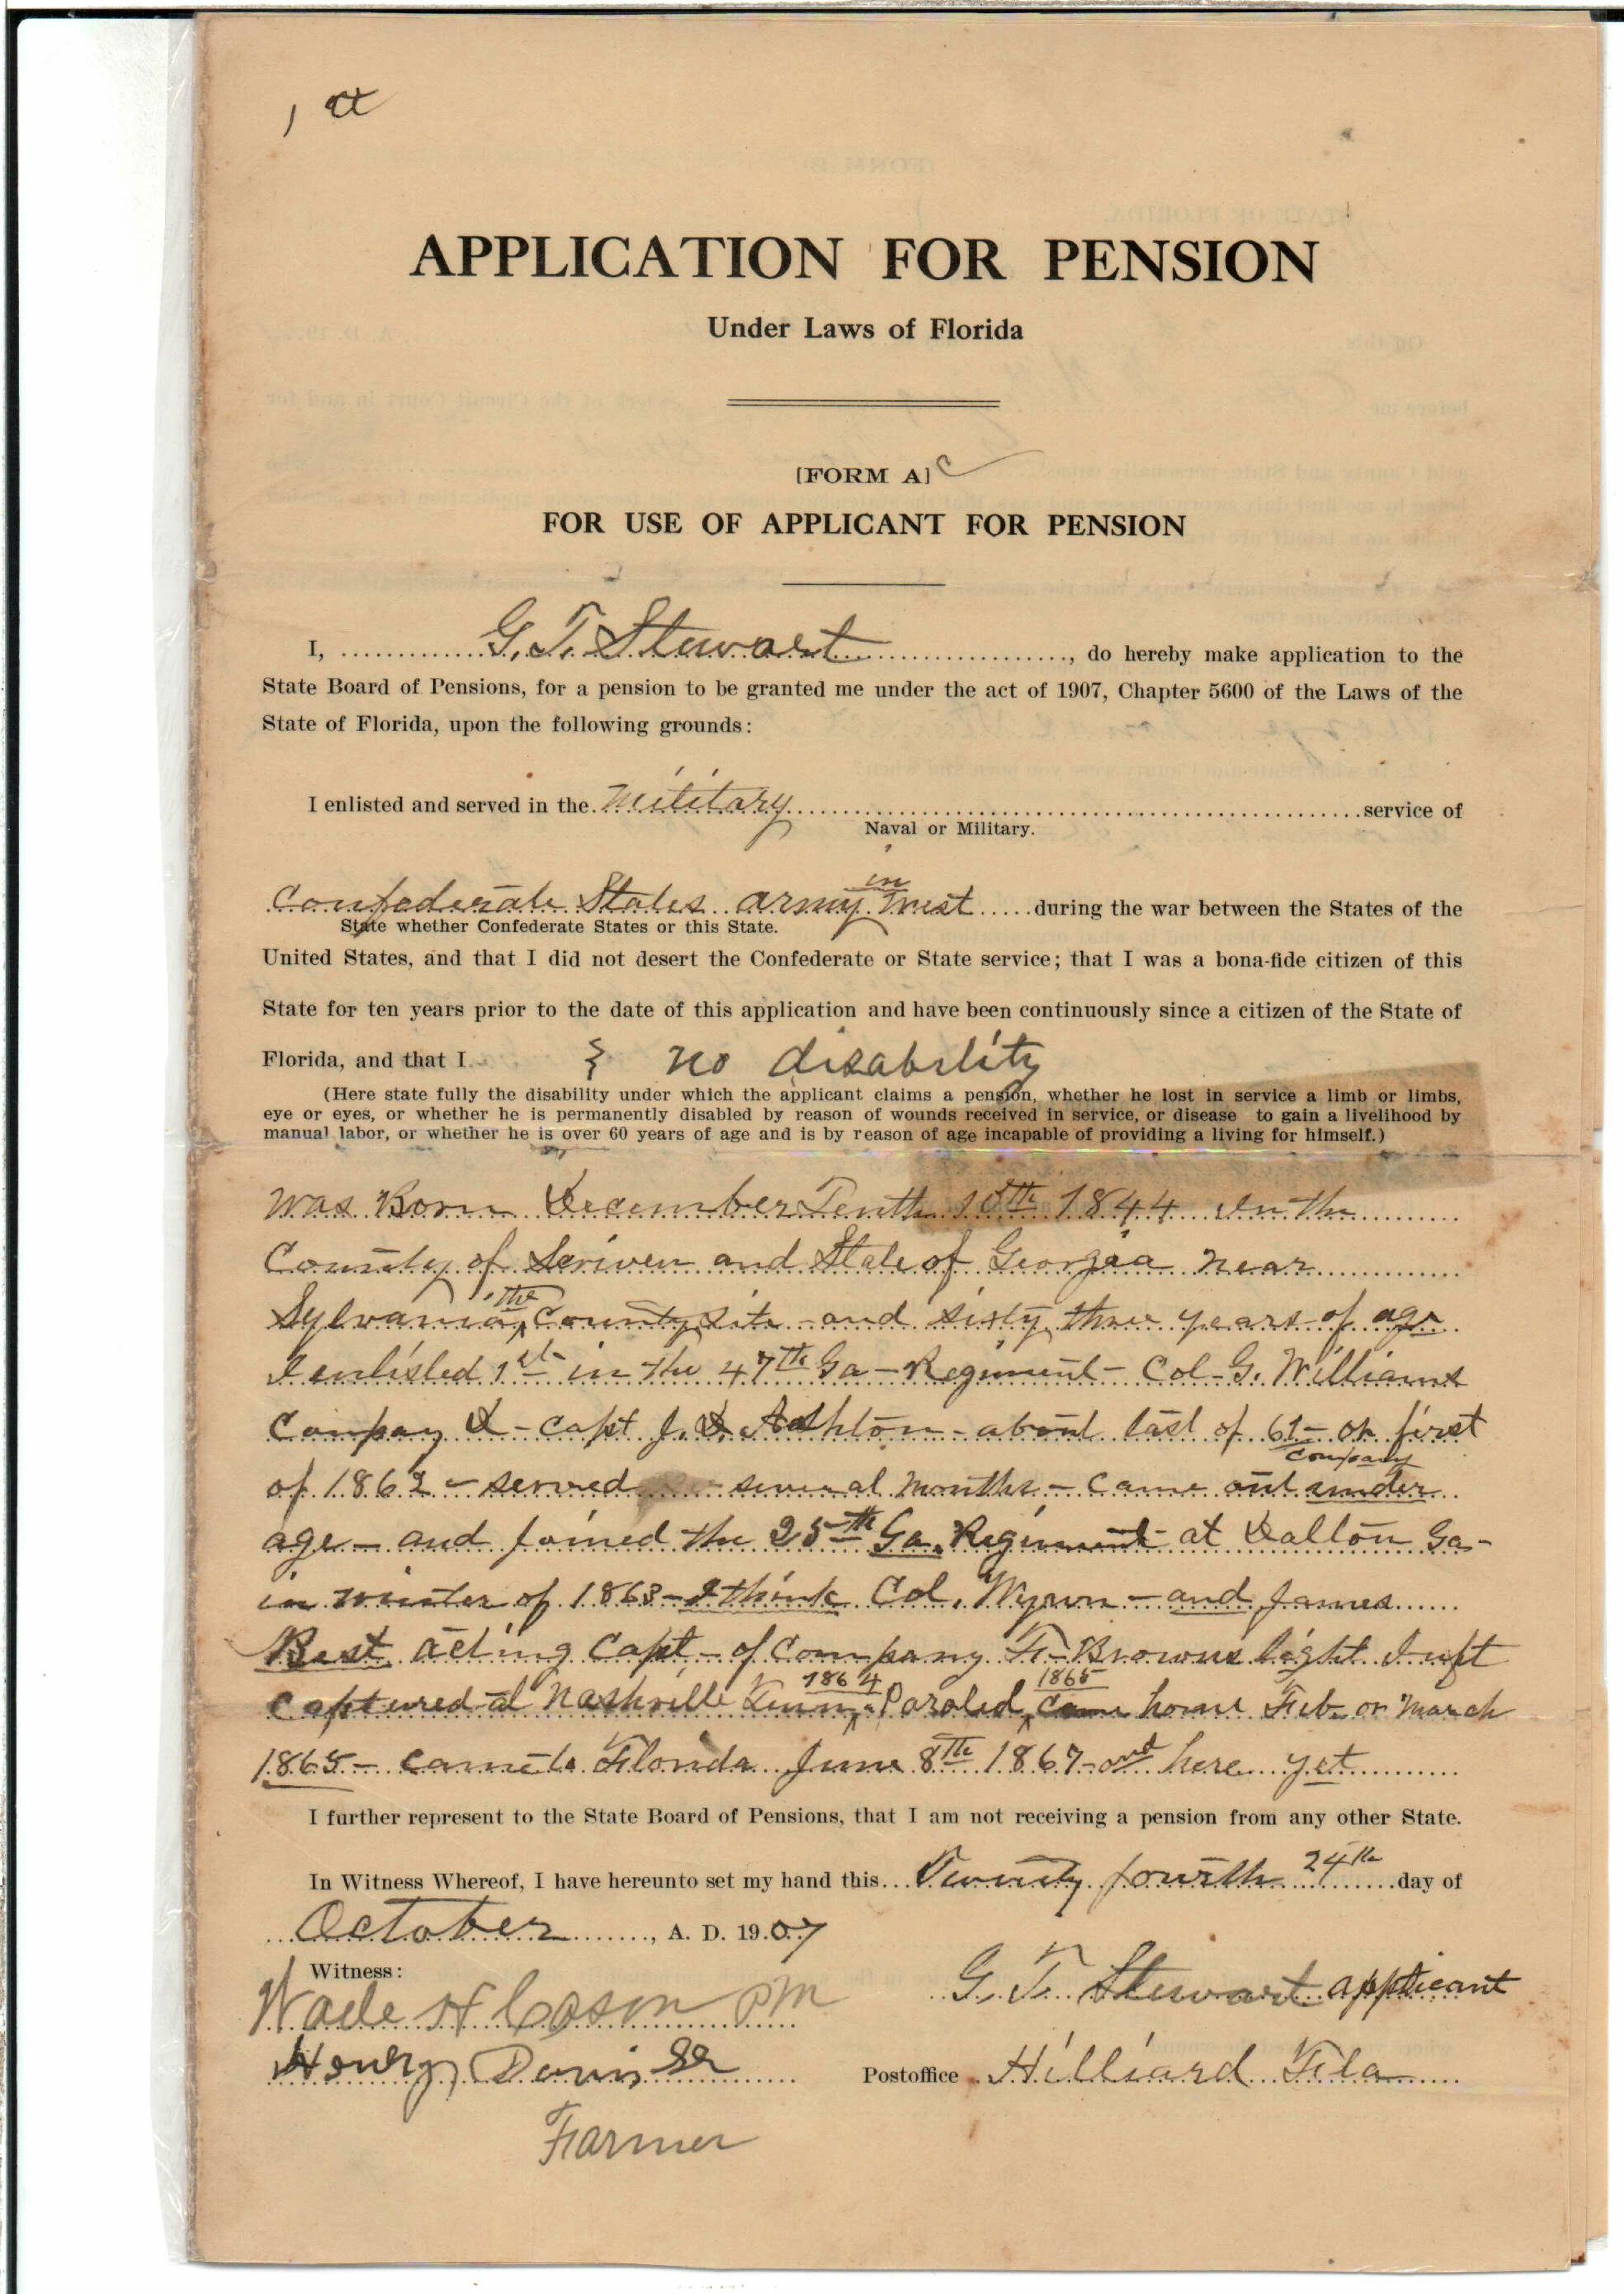 1 st
APPLICATION FOR PENSION
Under Laws of Florida
[FORM A] C
FOR USE OF APPLICANT FOR PENSION
I, G. T. Stewart, do hereby make application to the
State Board of Pensions, for a pension to be granted me under the act of 1907, Chapter 5600 of the Laws of the
State of Florida, upon the following grounds:
I enlisted and served in the military service of
Naval or Military.
in
Confederate States army West during the war between the States of the
State whether Confederate States or this State.
United States, and that I did not desert the Confederate or State service; that I was a bona-fide citizen of this
State for ten years prior to the date of this application and have been continuously since a citizen of the State of
Florida, and that I no disability
(Here state fully the disability under which the applicant claims a pension, whether he lost in service a limb or limbs,
eye or eyes, or whether he is permanently disabled by reason of wounds received in service, or disease to gain a livelihood by
manual labor, or whether he is over 60 years of age and is by reason of age incapable of providing a living for himself.)
was Born December Tenth 10th 1844 In the
County of Scriven and State of Georgia near
Sylvania, the County Site and sixty three years of age
I enlisted 1st in the 47th Ga - Regiment - Col - G. Williams
Conpay D - capt J. D. Ashton - about last of 61 - or first
company
of 1862 - served several months - came out under
age - and joined the 25th Ga. Regiment - at Dalton Ga -
in winter of 1863 - I think Col. Wynn - and James
Best acting Capt - of Company F - Browns light Inft
1864 1865
Captured at Nashville Tenn - Paroled, came home Feb - or March
1865 - came to Florida June 8th 1867 - and here yet
I further represent to the State Board of Pensions, that I am not receiving a pension from any other State.
In Witness Whereof, I have hereunto set my hand this Twenty fourth 24th day of
October, A. D. 1907
Witness:
G. T. Stewart applicant
Wade H Cason PM
Henry Davis Sr
Postoffice Hilliard Fla
Farmer